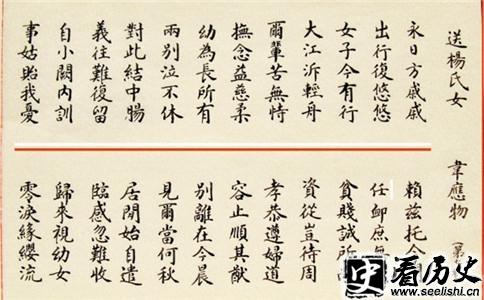 送楊氏女
永日方戚戚
出行復悠悠
女子今有行
大江泝輕舟
爾輩苦無恃
撫念益慈柔
幼為長所育
兩別泣不休
對此結中腸
義往難復留
自小闕內訓
事姑貽我憂
韋應物（第
賴茲托令
任卹庶無
貧賤誠所
資從豈待周
孝恭遵婦道
容止順其猷
別離在今晨
見爾當何秋
居閑始自遣
臨感忽難收
歸來視幼女
零淚緣纓流
史 看历史
www.seelishi.cn